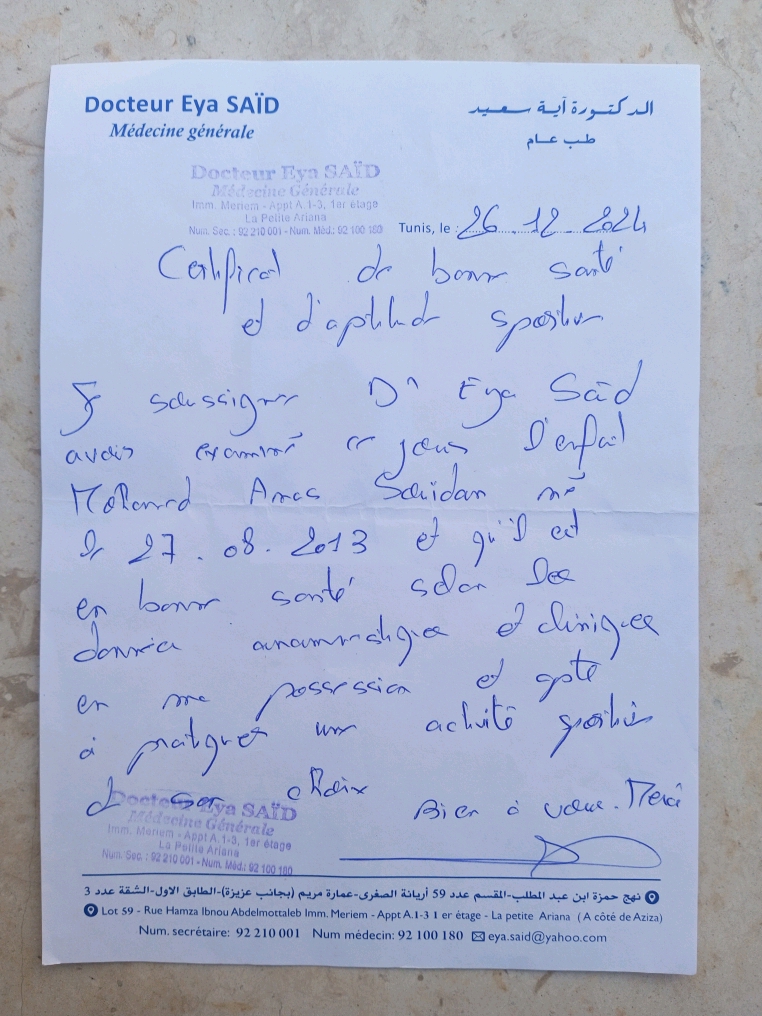 Docteur Eya SAÏD
Médecine générale
الدكتورة آية سعيد
طب عام
Docteur Eya SAÏD
Médecine Générale
Imm. Meriem - Appt A.1-3, 1er étage
La Petite Ariana
Num. Sec. : 92 210 001 - Num. Méd.: 92 100 180
Tunis, le : 26.12.2024
Certificat de bonne santé
et d'aptitude sportive
Je soussigner Dr Eya Saïd
avoir examiné ce jour l'enfant
Mohamed Anas Saidan né
le 27.08.2013 et qu'il est
en bonne santé selon les
données anamnestiques et cliniques
en ma possession et apte
à pratiquer une activité sportive
de son choix
Bien à vous. Merci
Docteur Eya SAÏD
Médecine Générale
Imm. Meriem - Appt A.1-3, 1er étage
La Petite Ariana
Num. Sec. : 92 210 001 - Num. Méd.: 92 100 180
نهج حمزة ابن عبد المطلب-المقسم عدد 59 أريانة الصغرى-عمارة مريم (بجانب عزيزة)-الطابق الاول-الشقة عدد 3
Lot 59 - Rue Hamza Ibnou Abdelmottaleb Imm. Meriem - Appt A.1-3 1 er étage - La petite Ariana ( A côté de Aziza)
Num. secrétaire: 92 210 001 Num médecin: 92 100 180 eya.said@yahoo.com